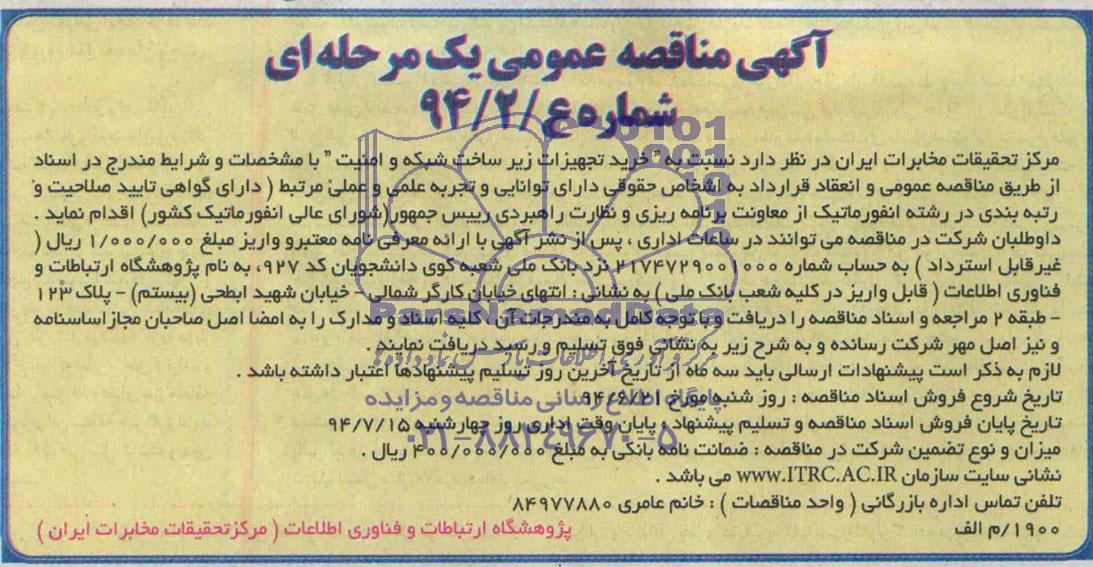 آگهی مناقصه عمومی یک مرحله ای
شماره ع/۹۴/۲
مرکز تحقیقات مخابرات ایران در نظر دارد نسبت به " خرید تجهیزات زیر ساخت شبکه و امنیت " با مشخصات و شرایط مندرج در اسناد
از طریق مناقصه عمومی و انعقاد قرارداد به اشخاص حقوقی دارای توانایی و تجربه علمی و عملی مرتبط ( دارای گواهی تایید صلاحیت و
رتبه بندی در رشته انفورماتیک از معاونت برنامه ریزی و نظارت راهبردی رییس جمهور(شورای عالی انفورماتیک کشور) اقدام نماید .
داوطلبان شرکت در مناقصه می توانند در ساعات اداری ، پس از نشر آگهی با ارائه معرفی نامه معتبرو واریز مبلغ ۱/۰۰۰/۰۰۰ ریال (
غیرقابل استرداد ) به حساب شماره ۲۱۷۴۷۲۹۰۰۱۰۰۰ نزد بانک ملی شعبه کوی دانشجویان کد ۹۲۷، به نام پژوهشگاه ارتباطات و
فناوری اطلاعات ( قابل واریز در کلیه شعب بانک ملی ) به نشانی : انتهای خیابان کارگر شمالی - خیابان شهید ابطحی (بیستم) - پلاک ۱۲۳
- طبقه ۲ مراجعه و اسناد مناقصه را دریافت و با توجه کامل به مندرجات آن ، کلیه اسناد و مدارک را به امضا اصل صاحبان مجاز اساسنامه
و نیز اصل مهر شرکت رسانده و به شرح زیر به نشانی فوق تسلیم و رسید دریافت نمایند .
لازم به ذکر است پیشنهادات ارسالی باید سه ماه از تاریخ آخرین روز تسلیم پیشنهادها اعتبار داشته باشد .
تاریخ شروع فروش اسناد مناقصه : روز شنبه مورخ ۹۴/۶/۲۱
پایگاه اطلاع رسانی مناقصه و مزایده
تاریخ پایان فروش اسناد مناقصه و تسلیم پیشنهاد : پایان وقت اداری روز چهارشنبه ۹۴/۷/۱۵
۰۲۱-۸۸۳۴۹۶۷۰-۵
میزان و نوع تضمین شرکت در مناقصه : ضمانت نامه بانکی به مبلغ ۴۰۰/۰۰۰/۰۰۰ ریال .
نشانی سایت سازمان www.ITRC.AC.IR می باشد .
تلفن تماس اداره بازرگانی ( واحد مناقصات ) : خانم عامری ۸۴۹۷۷۸۸۰
۱۹۰۰/م الف
پژوهشگاه ارتباطات و فناوری اطلاعات ( مرکزتحقیقات مخابرات ایران )